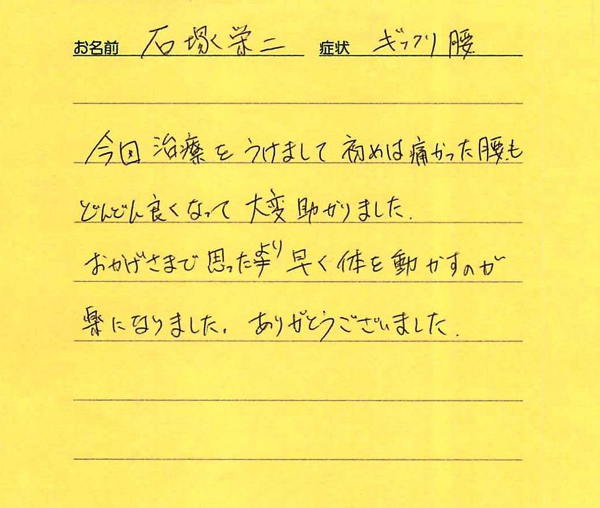 お名前 石塚栄二 症状 ギックリ腰
今回 治療を うけまして 初めは痛かった腰も
どんどん良くなって 大変助かりました.
おかげさまで思ったより早く体を動かすのが
楽になりました. ありがとうございました.